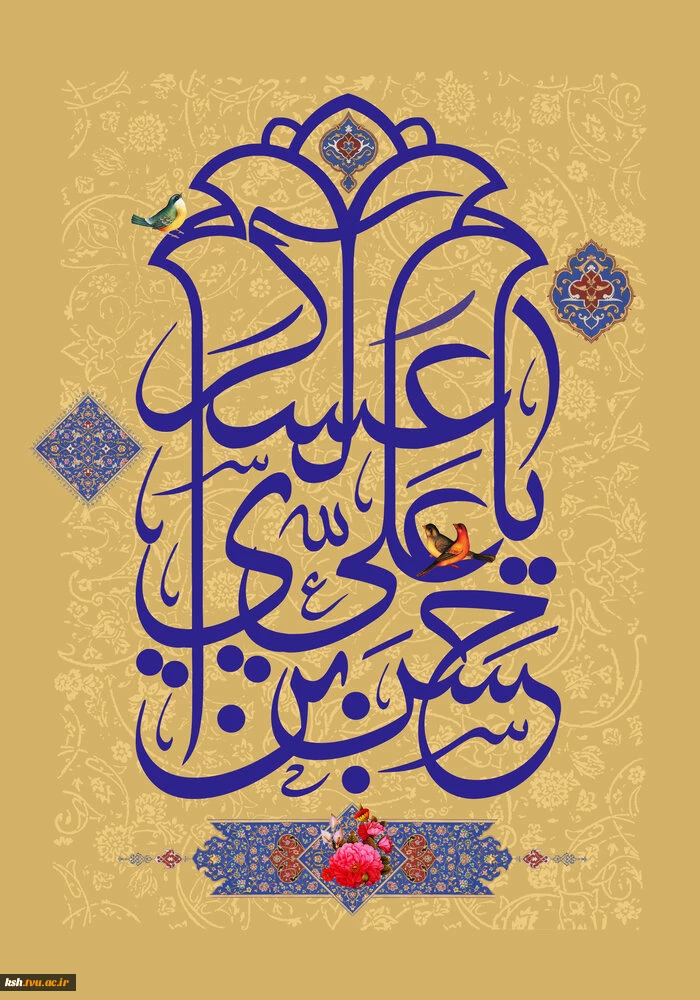 یا حسن بن علی العسکری
ksh.tvu.ac.ir